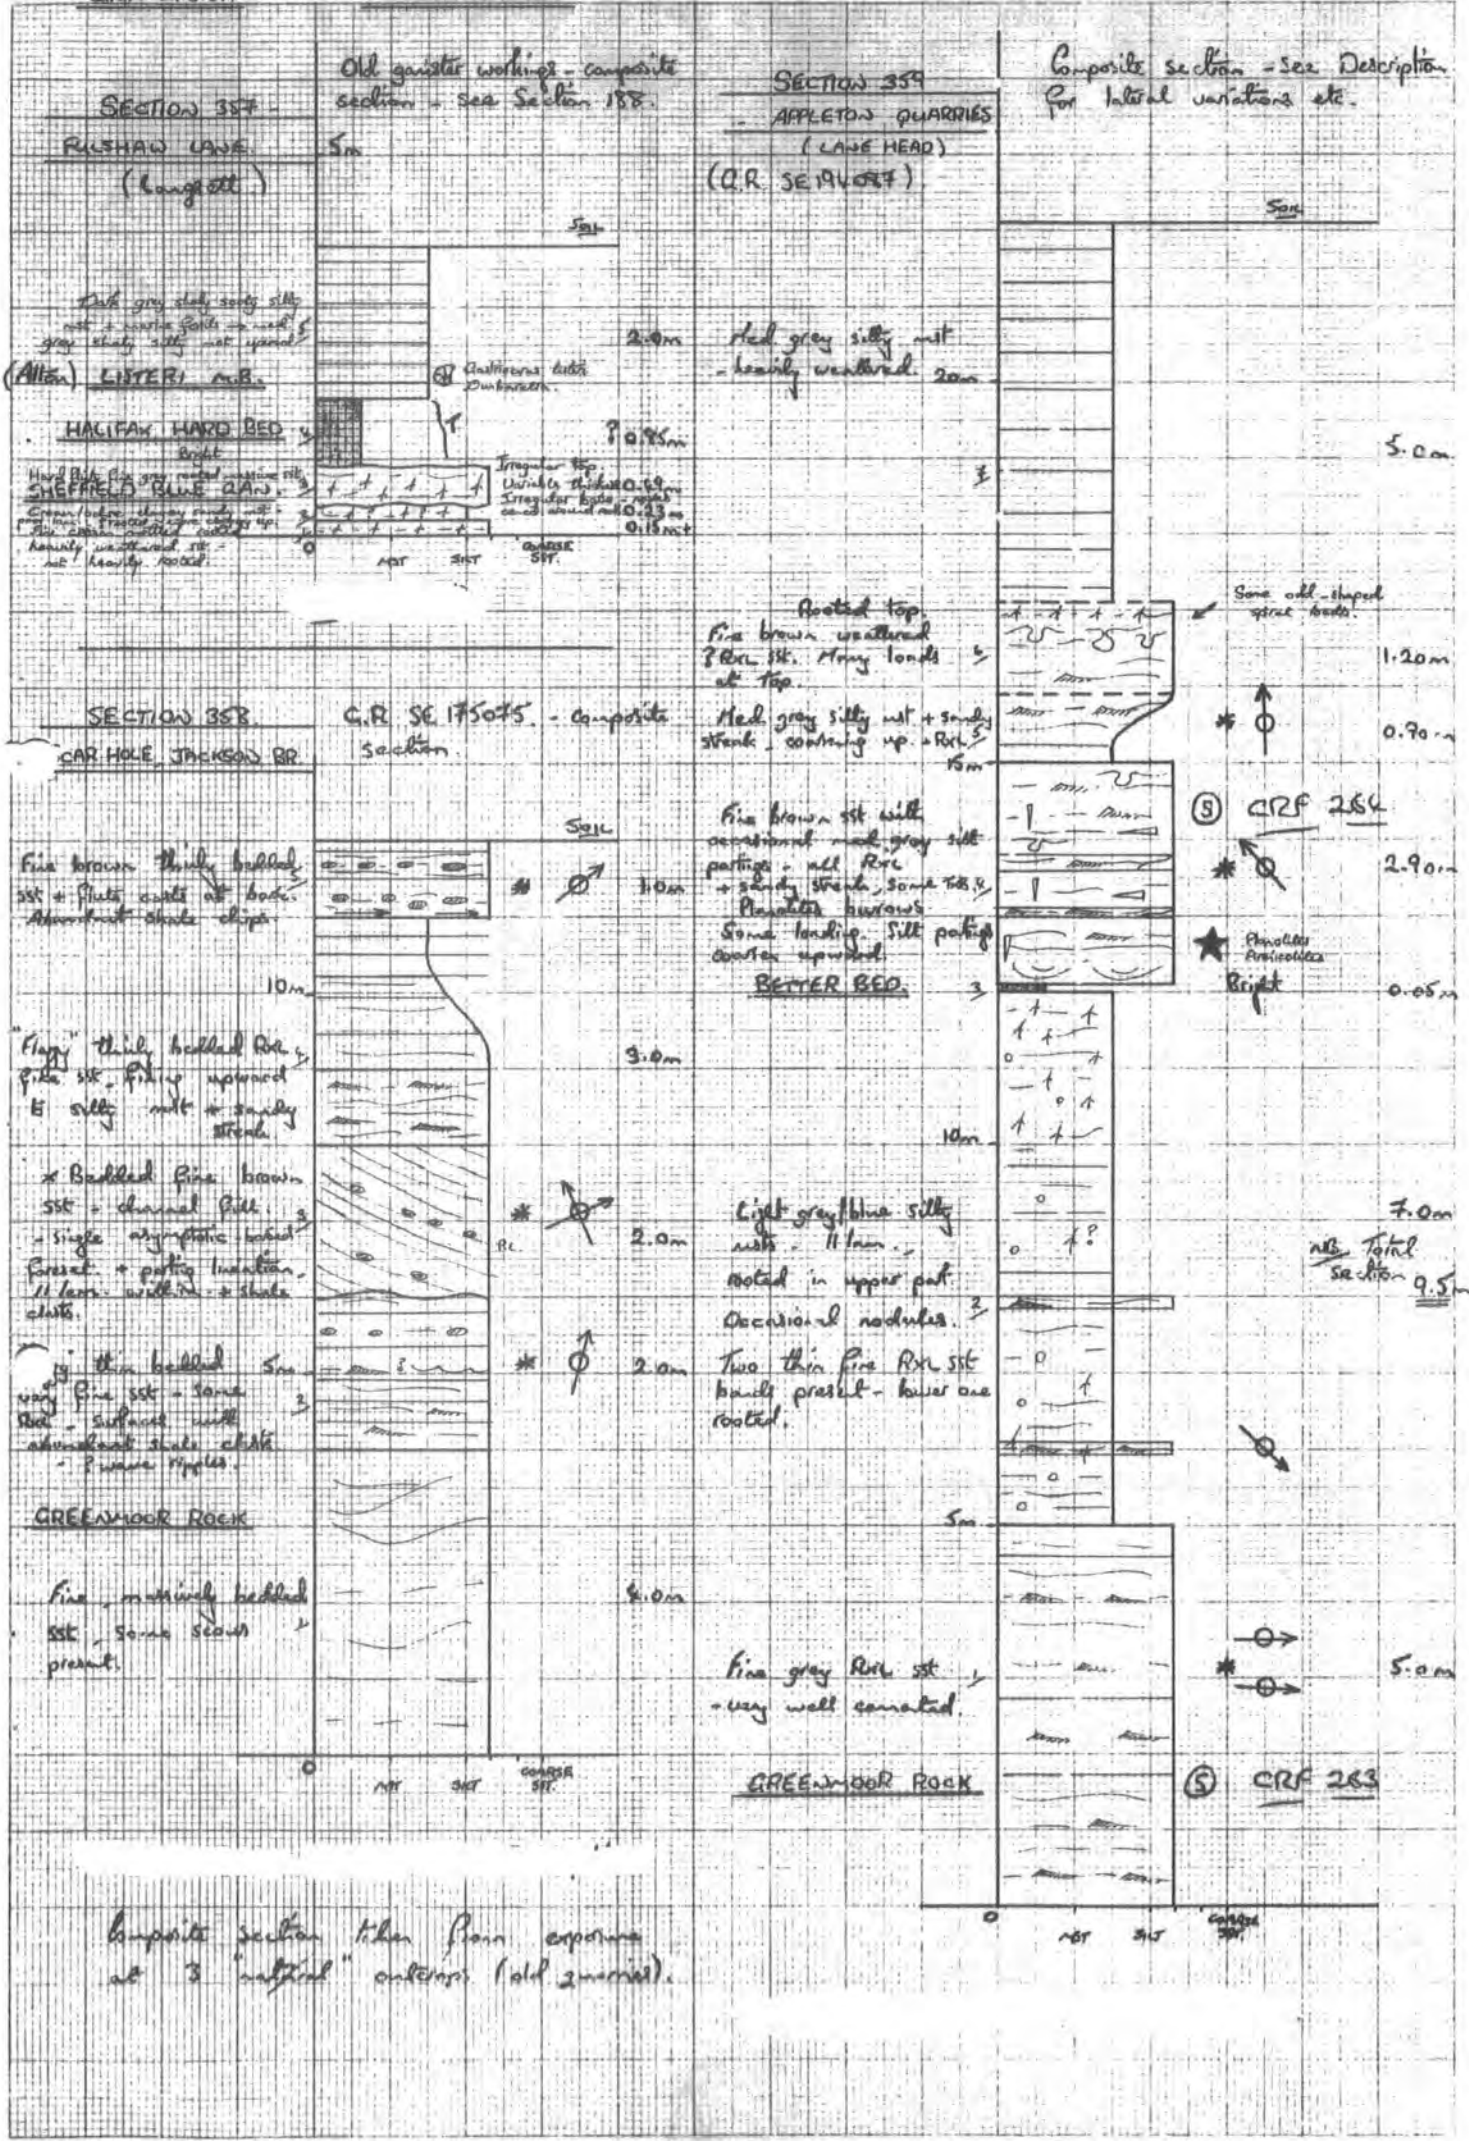 SECTION 357 -
FULSHAW LANE.
(Langsett)
Old ganister workings - composite
section - see Section 188.
5m
SOIL
Dark grey shaly sooty silty
mst + marine fossils → med.
grey shaly silty mst upward
5
2.0m
(Alton) LISTERI M.B.
Dunbarella.
HALIFAX HARD BED
4
? 0.85m
Bright
SHEFFIELD BLUE GAN.
3
Irregular top.
Variable thickness 0.49m
Irregular base - roots
0.23m
0.15m+
heavily weathered sst -
not heavily rooted.
0
MST
SILT
COARSE
SST.
SECTION 358.
CAR HOLE, JACKSON BR.
G.R SE 175075. - composite
section.
SOIL
Fine brown thinly bedded
sst + flute casts at base.
Abundant shale clips.
5
1.0m
10m
"Flaggy" thinly bedded RXL
fine sst. fining upward
to silty mst + sandy
streak
4
3.0m
x Bedded fine brown
sst - channel fill.
- single asymptotic-based
foreset. + parting lineation,
// lam. within. + shale
clasts.
3
P.L.
2.0m
thin bedded
very fine sst - some
RXL - surfaces with
abundant shale clasts
- ? wave ripples.
5m
2
2.0m
GREENMOOR ROCK
Fine, massively bedded
sst, some scours
present.
1
4.0m
0
MST
SILT
COARSE
SST.
Composite section taken from exposure
at 3 "natural" outcrops (old quarries).
SECTION 359
- APPLETON QUARRIES
(LANE HEAD)
(G.R. SE 194087)
Composite section - See Description
for lateral variations etc.
SOIL
Med. grey silty mst
- heavily weathered.
20m
7
5.0m
Rooted top.
Fine brown weathered
? RXL sst. Many loads
at top.
6
Some odd-shaped
spiral loads.
1.20m
Med grey silty mst + sandy
streak, coarsening up. + RXL
5
0.90m
15m
Ⓢ CRF 264
Fine brown sst with
occasional med. grey silt
partings - all RXL
+ sandy streak, some
Planolites burrows
Some loading. Silt partings
coarsen upward.
4
2.90m
Planolites
BETTER BED.
3
Bright
0.05m
10m
Light grey/blue silty
msts - // lam.,
rooted in upper part.
Occasional nodules.
2
Two thin fine RXL sst
bands present - lower one
rooted.
?
7.0m
NB. Total
section 9.5m
5m
Fine grey RXL sst
- very well cemented.
1
5.0m
GREENMOOR ROCK
Ⓢ CRF 263
0
MST
SILT
COARSE
SST.